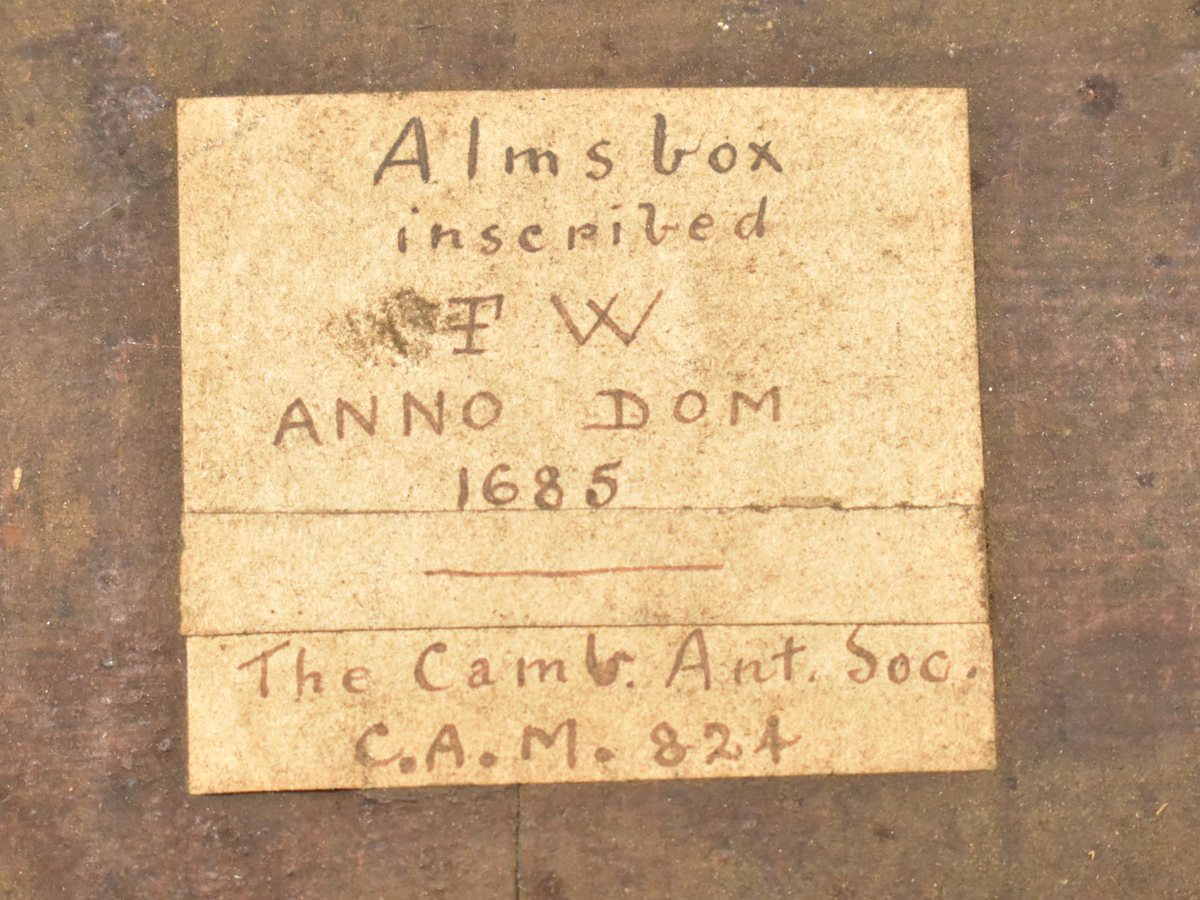 Alms box
inscribed
F W
ANNO DOM
1685
The Camb. Ant. Soc.
C.A.M. 824